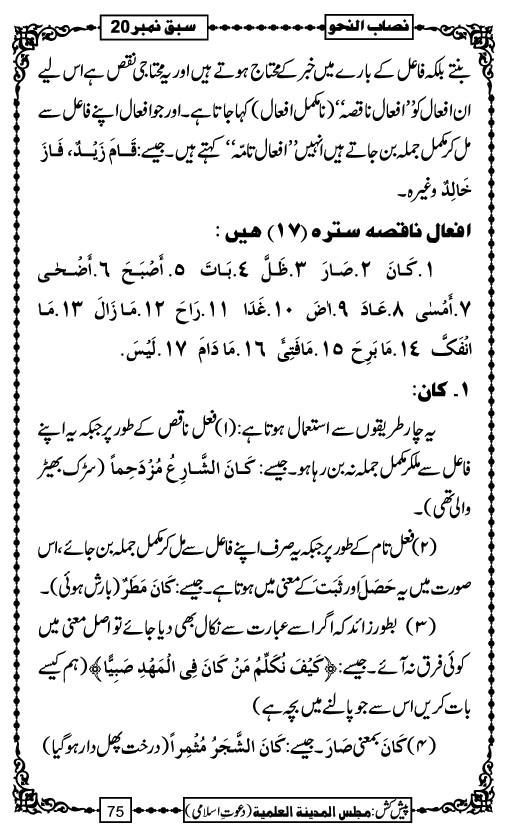 نصاب النحو
سبق نمبر 20
بنتے بلکہ فاعل کے بارے میں خبر کے محتاج ہوتے ہیں اور یہ محتاجی نقص ہے اس لیے
ان افعال کو ’’افعال ناقصہ‘‘ (نا مکمل افعال) کہا جاتا ہے۔ اور جو افعال اپنے فاعل سے
مل کر مکمل جملہ بن جاتے ہیں انہیں ’’افعال تامّہ‘‘ کہتے ہیں۔ جیسے: قَامَ زَیْدٌ، فَازَ
خَالِدٌ وغیرہ۔
افعال ناقصہ سترہ (۱۷) ھیں :
۱.کَانَ ۲.صَارَ ۳.ظَلَّ ۴.بَاتَ ۵.أَصْبَحَ ۶.أَضْحٰی
۷.أَمْسٰی ۸.عَادَ ۹.اٰضَ ۱۰.غَدَا ۱۱.رَاحَ ۱۲.مَا زَالَ ۱۳.مَا
انْفَکَّ ۱۴.مَا بَرِحَ ۱۵.مَافَتِیَٔ ۱۶.مَا دَامَ ۱۷.لَیْسَ.
۱۔ کان:
یہ چار طریقوں سے استعمال ہوتا ہے: (۱) فعل ناقص کے طور پر جبکہ یہ اپنے
فاعل سے ملکر مکمل جملہ نہ بن رہا ہو۔ جیسے: کَانَ الشَّارِعُ مُزْدَحِماً (سڑک بھیڑ
والی تھی)۔
(۲) فعل تام کے طور پر جبکہ یہ صرف اپنے فاعل سے مل کر مکمل جملہ بن جائے، اس
صورت میں یہ حَصَلَ اور ثَبَتَ کے معنی میں ہوتا ہے۔ جیسے: کَانَ مَطَرٌ (بارش ہوئی)۔
(۳) بطور زائد کہ اگر اسے عبارت سے نکال بھی دیا جائے تو اصل معنی میں
کوئی فرق نہ آئے۔ جیسے: ﴿کَیْفَ نُکَلِّمُ مَنْ کَانَ فِی الْمَهْدِ صَبِیًّا﴾ (ہم کیسے
بات کریں اس سے جو پالنے میں بچہ ہے)
(۴) کَانَ بمعنی صَارَ۔ جیسے: کَانَ الشَّجَرُ مُثْمِراً (درخت پھل دار ہوگیا)
پیش کش: مجلس المدینۃ العلمیۃ (دعوت اسلامی)
75